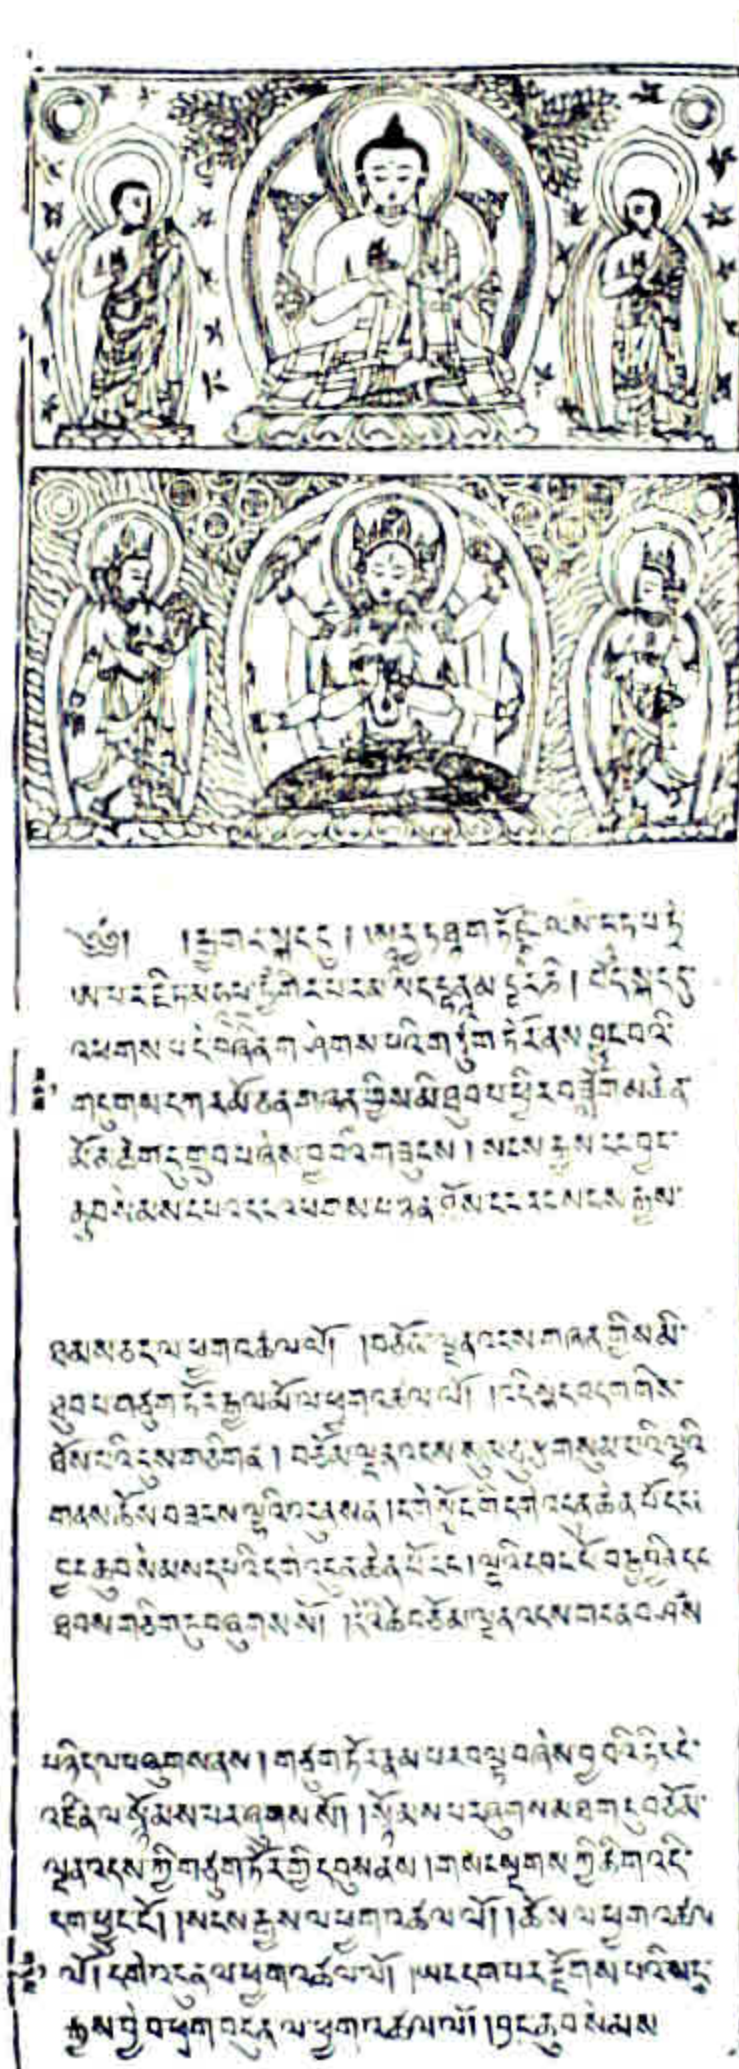 ༄༅། །རྒྱ་གར་སྐད་དུ།
ཨ་པ་རཱ་ཛི་ཏ་མ་ཧཱ་པྲ་ཏྱཾ་གི་ར་པ་ར་མ་སིདྡྷ་ནཱ་མ་དྷཱ་ར་ཎཱི། བོད་སྐད་དུ
འཕགས་པ་དེ་བཞིན་གཤེགས་པའི་གཙུག་ཏོར་ནས་བྱུང་བའི་
གདུགས་དཀར་མོ་ཅན་གཞན་གྱིས་མི་ཐུབ་པ་ཕྱིར་བཟློག་མ་ཆེན་
མོ་མཆོག་ཏུ་གྲུབ་པ་ཞེས་བྱ་བའི་གཟུངས། སངས་རྒྱས་དང་བྱང་
ཆུབ་སེམས་དཔའ་དང་འཕགས་པ་ཉན་ཐོས་དང་རང་སངས་རྒྱས་
ཐམས་ཅད་ལ་ཕྱག་འཚལ་ལོ། །བཅོམ་ལྡན་འདས་གཞན་གྱིས་མི་
ཐུབ་པ་གཙུག་ཏོར་རྒྱལ་མོ་ལ་ཕྱག་འཚལ་ལོ། །འདི་སྐད་བདག་གིས་
ཐོས་པའི་དུས་གཅིག་ན། བཅོམ་ལྡན་འདས་སུམ་ཅུ་རྩ་གསུམ་པའི་ལྷའི་
གནས་ཆོས་བཟངས་ལྷའི་འདུན་ས་ན། དགེ་སློང་གི་དགེ་འདུན་ཆེན་པོ་དང་
བྱང་ཆུབ་སེམས་དཔའི་དགེ་འདུན་ཆེན་པོ་དང་། ལྷའི་དབང་པོ་བརྒྱ་བྱིན་དང་
ཐབས་གཅིག་ཏུ་བཞུགས་སོ། །དེའི་ཚེ་བཅོམ་ལྡན་འདས་གདན་བཤམས་
པ་ཉིད་ལ་བཞུགས་ནས། གཙུག་ཏོར་རྣམ་པར་བལྟ་བ་ཞེས་བྱ་བའི་ཏིང་ངེ་
འཛིན་ལ་སྙོམས་པར་ཞུགས་སོ། །སྙོམས་པར་ཞུགས་མ་ཐག་ཏུ་བཅོམ་
ལྡན་འདས་ཀྱི་གཙུག་ཏོར་གྱི་དབུས་ནས། གསང་སྔགས་ཀྱི་ཚིག་འདི་
དག་ཕྱུང་ངོ། །སངས་རྒྱས་ལ་ཕྱག་འཚལ་ལོ། །ཆོས་ལ་ཕྱག་འཚལ་
ལོ། དགེ་འདུན་ལ་ཕྱག་འཚལ་ལོ། །ཡང་དག་པར་རྫོགས་པའི་སངས་
རྒྱས་བྱེ་བ་ཕྲག་བདུན་ལ་ཕྱག་འཚལ་ལོ། །བྱང་ཆུབ་སེམས